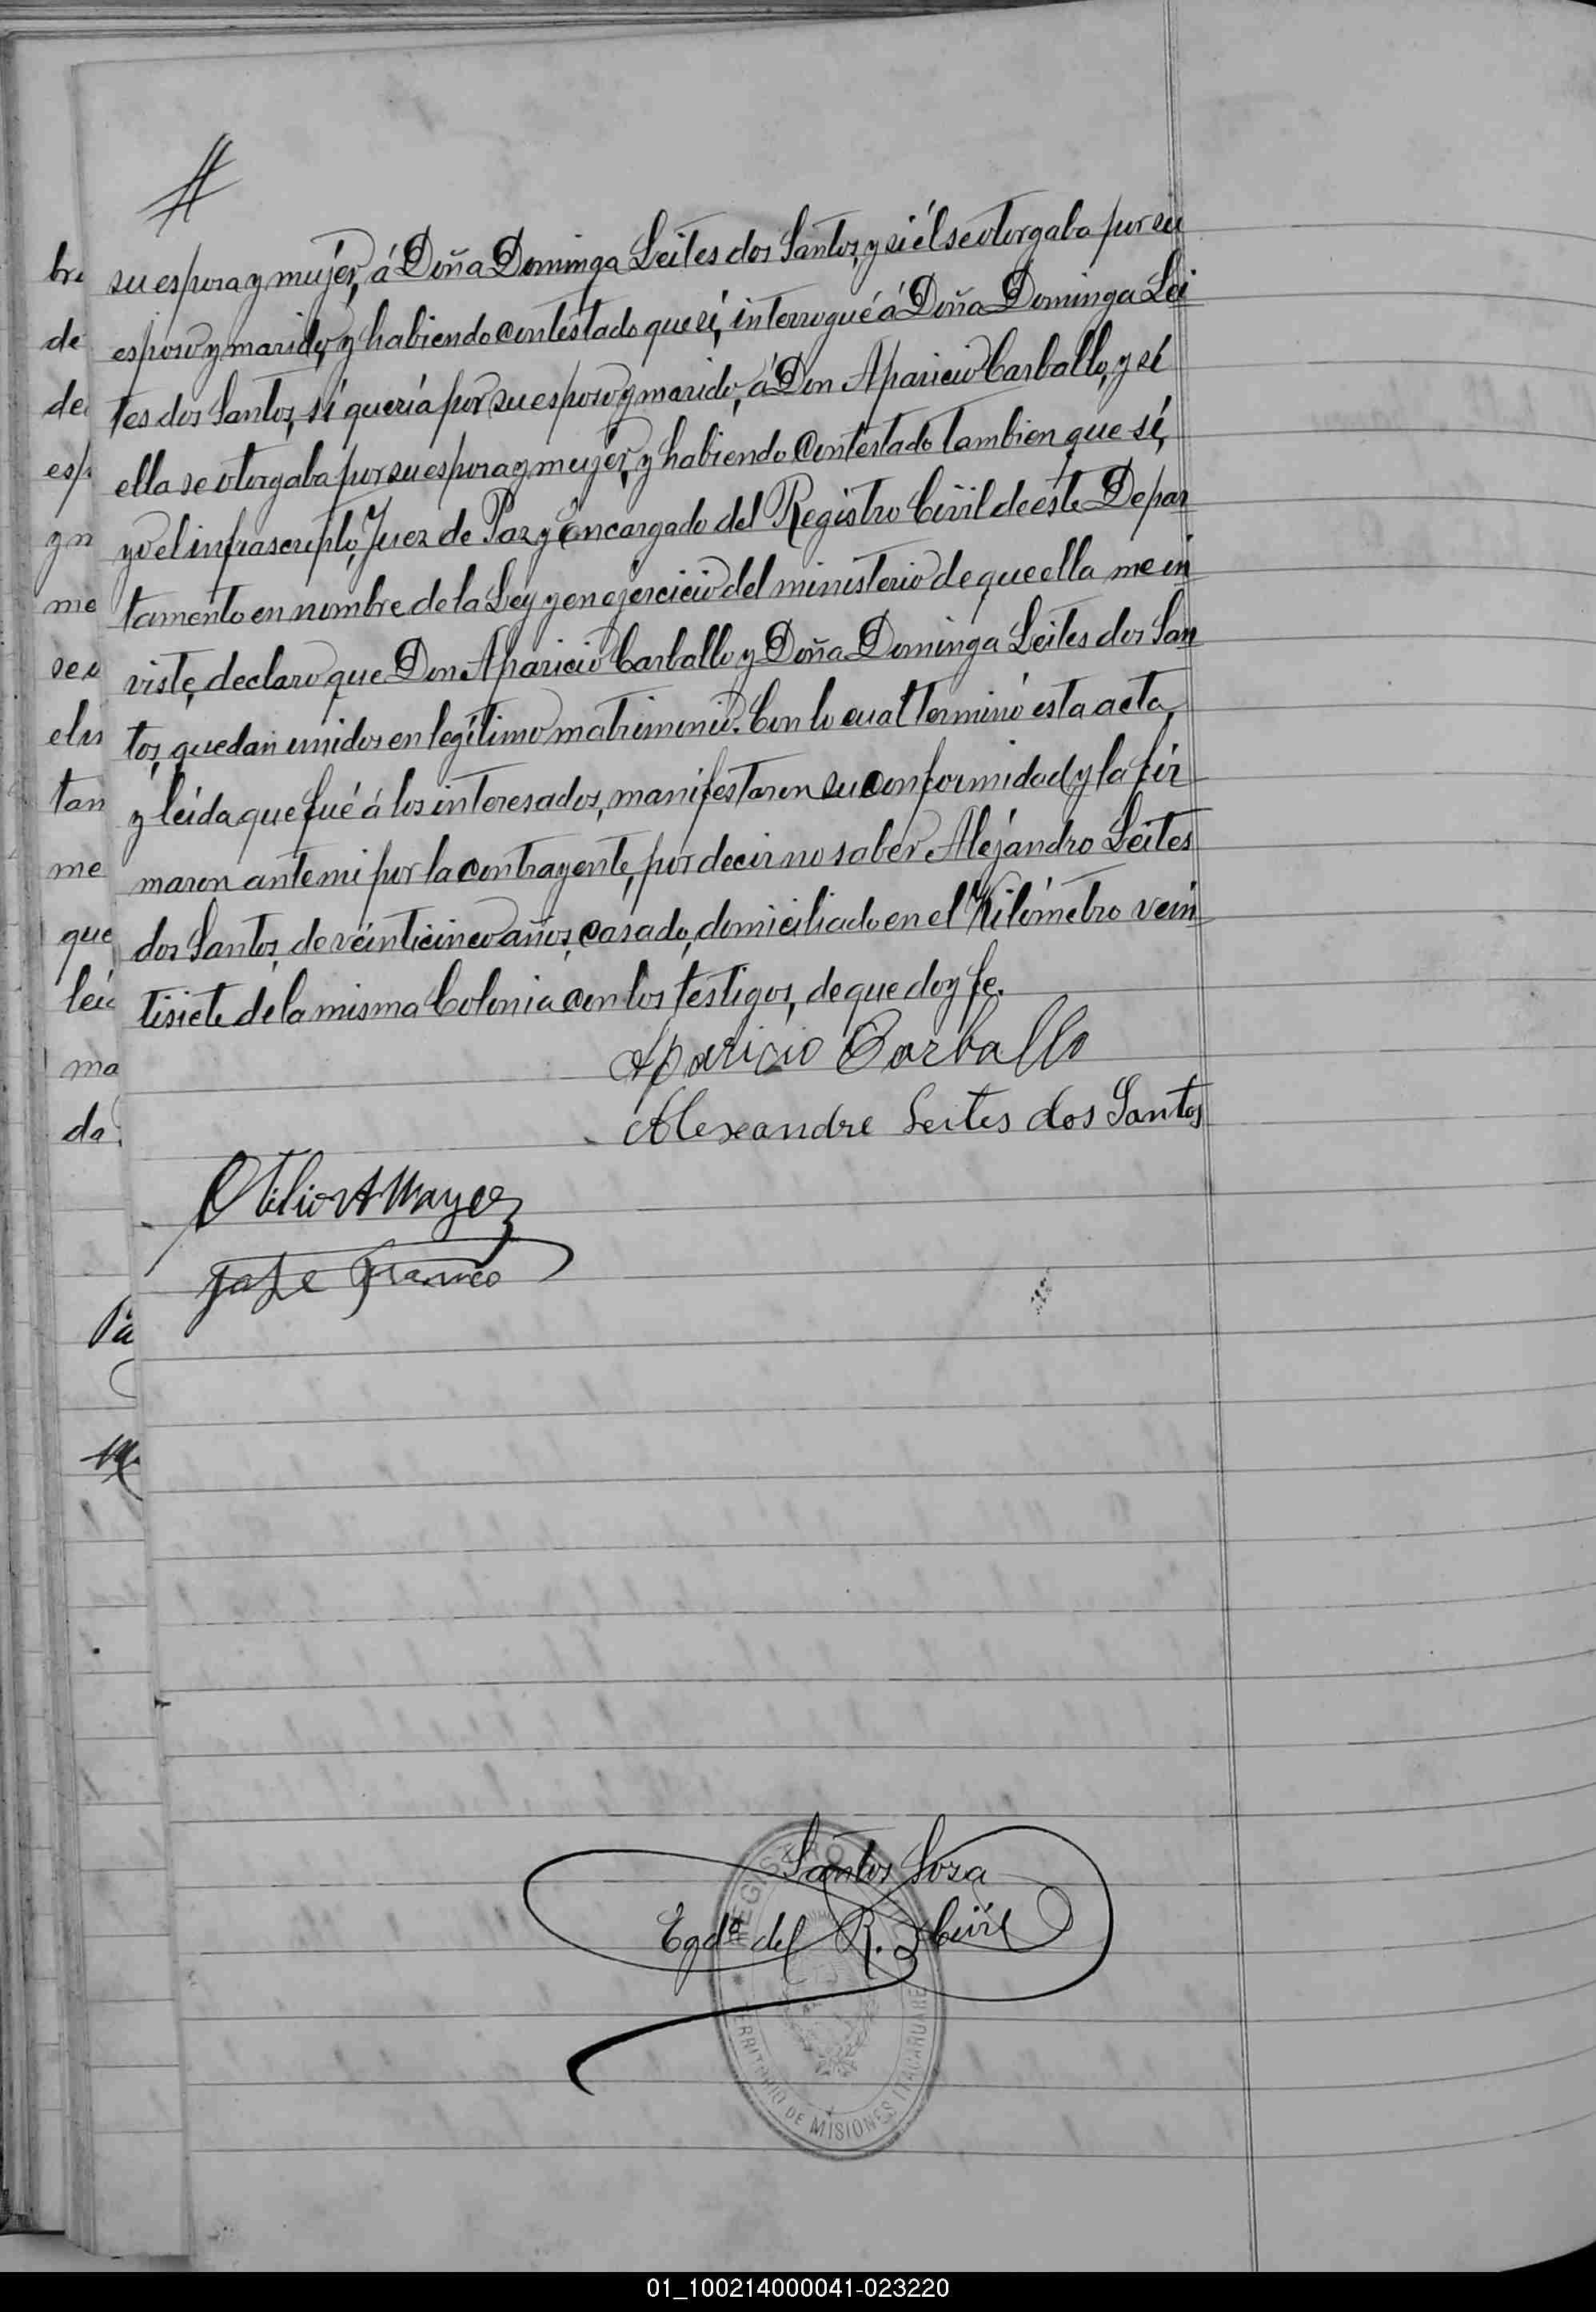 bre
su esposa y mujer, á Doña Dominga Leites dos Santos, y si él se otorgaba por su
de
esposo y marido, y habiendo contestado que sí, interrogué á Doña Dominga Lei
de
tes dos Santos, sí quería por su esposo y marido, á Don Aparicio Carballo, y sí
esp
ella se otorgaba por su esposa y mujer, y habiendo contestado tambien que sí,
y m
yo el infrascripto, Juez de Paz y Encargado del Registro Civil de este Depar
me
tamento en nombre de la Ley y en ejercicio del ministerio de que ella me in
se o
viste, declaro que Don Aparicio Carballo y Doña Dominga Leites dos San
el in
tos, quedan unidos en legítimo matrimonio. Con lo cual terminó esta acta,
tam
y leída que fué á los interesados, manifestaron su conformidad y la fir
me
maron ante mi por la contrayente, por decir no saber Alejandro Leites
que
dos Santos, de veinticinco años, casado, domiciliado en el Kilómetro vein
leíd
tisiete de la misma Colonia con los testigos, de que doy fe.
ma
Aparicio Carballo
da.
Alexandre Leites dos Santos
Otilio A Mayer
José Franco
Santos Sosa
Egdº del R. Civil
REGISTRO
TERRITORIO DE MISIONES ITACARUARE
01_100214000041-023220